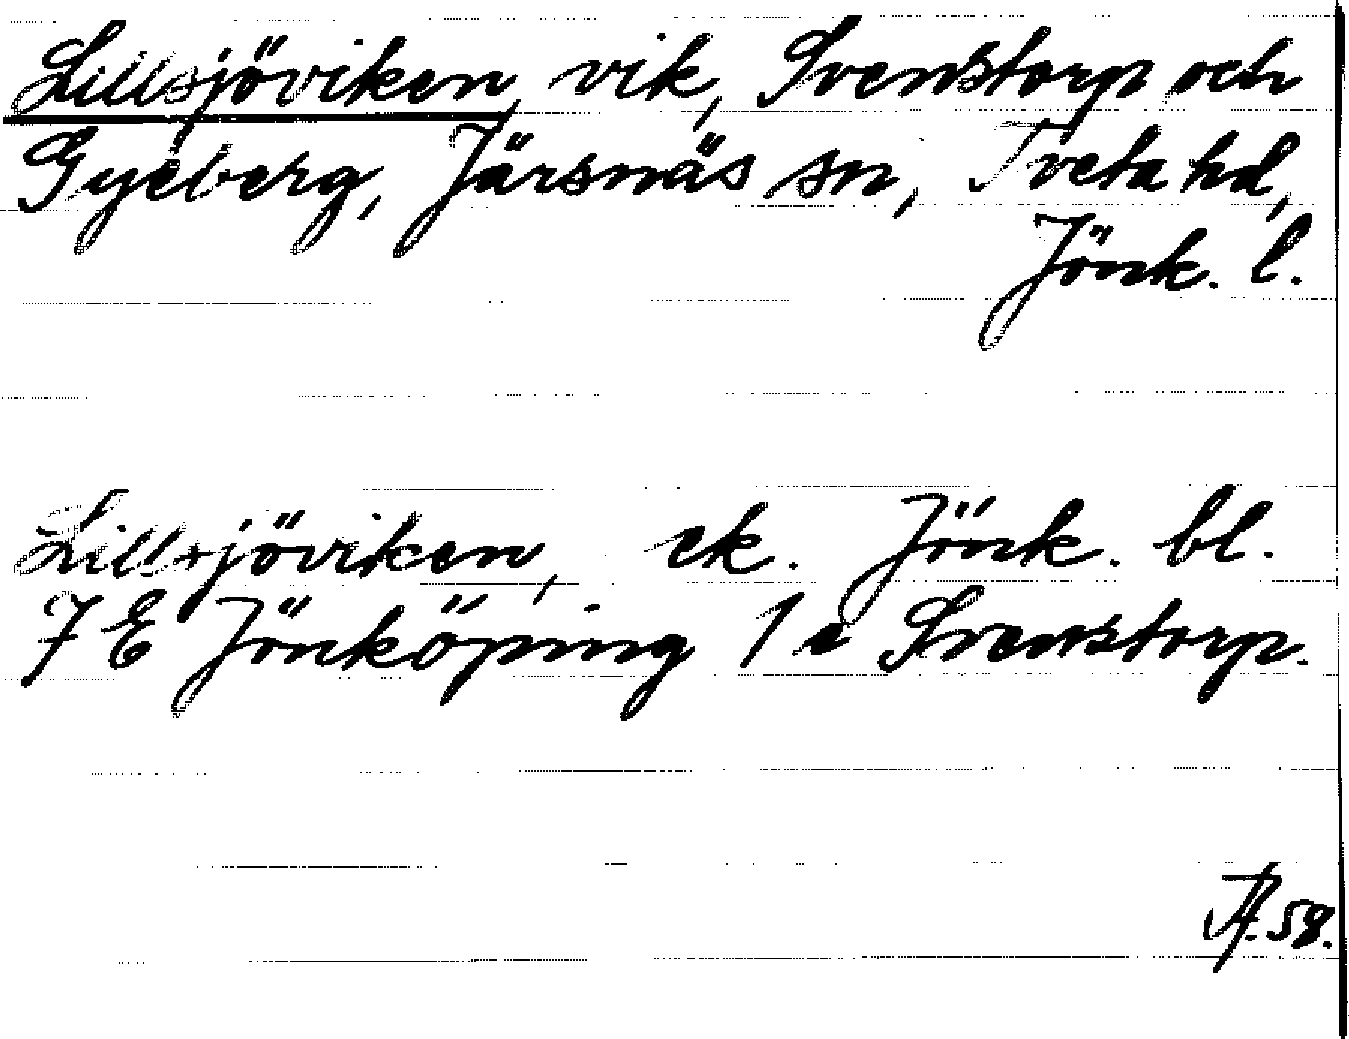 Lillsjöviken, vik, Svenstorp och
Gyeberg, Järsnäs sn, Tveta hd,
Jönk. l.
Lillsjöviken, ek. Jönk. bl.
7 E Jönköping 1 e Svenstorp.
58.